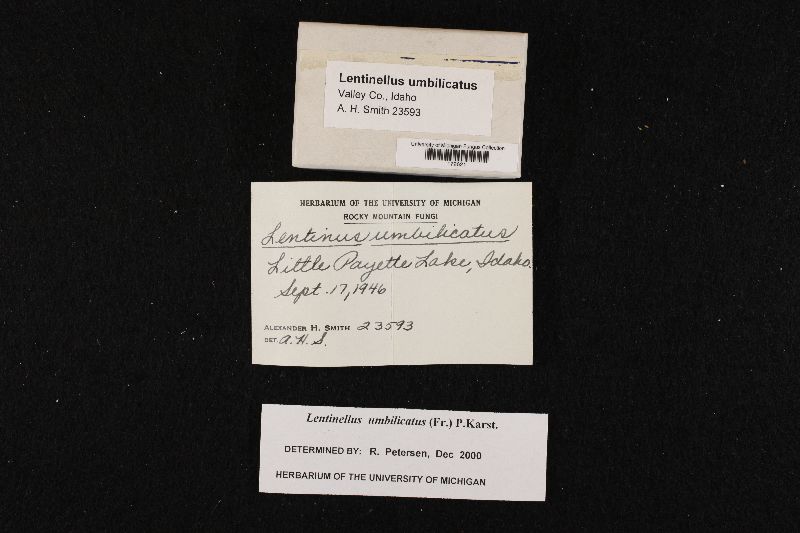 Lentinellus umbilicatus
Valley Co., Idaho
A. H. Smith 23593
University of Michigan Fungus Collection
HERBARIUM OF THE UNIVERSITY OF MICHIGAN
ROCKY MOUNTAIN FUNGI
Lentinus umbilicatus
Little Payette Lake, Idaho.
Sept. 17, 1946
ALEXANDER H. SMITH 23593
DET. A. H. S.
Lentinellus umbilicatus (Fr.) P.Karst.
DETERMINED BY: R. Petersen, Dec 2000
HERBARIUM OF THE UNIVERSITY OF MICHIGAN